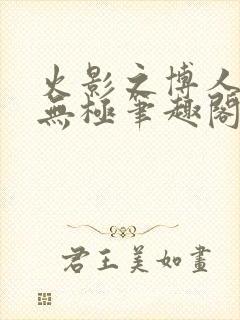 火影之博人
無極筆趣閣
君王美如畫